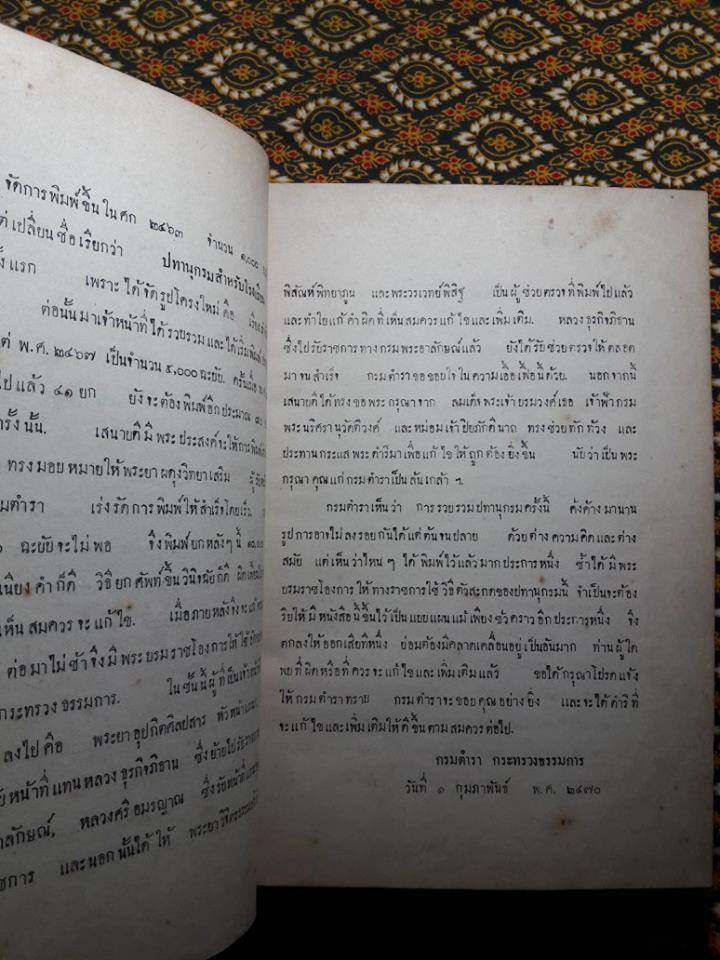 จัดการพิมพ์ขึ้นในศก ๒๔๖๓ จำนวน ๑,๐๐๐
เปลี่ยนชื่อเรียกว่า ปทานุกรมสำหรับโรงเรียน
แรก เพราะได้จัดรูปโครงใหม่ คือ
ต่อนั้นมาเจ้าหน้าที่ได้รวบรวมและได้เริ่มพิมพ์
พ.ศ. ๒๔๖๗ เป็นจำนวน ๕,๐๐๐ ฉะบับ. ครั้นเมื่อ
ไปแล้ว ๔๑ ยก ยังจะต้องพิมพ์อีกประมาณ
ครั้งนั้น. เสนาบดีมีพระประสงค์จะให้การพิมพ์
ทรงมอบหมายให้พระยาผดุงวิทยาเสริม
กรมตำรา เร่งรัดการพิมพ์ให้สำเร็จโดยเร็ว.
ฉะบับจะไม่พอ จึงพิมพ์ยกหลังๆ นี้ ๑๐,๐๐๐
คำก็ดี วิธียกศัพท์ขึ้นวินิจฉัยก็ดี
เห็นสมควรจะแก้ไข. เมื่อภายหลังจึงจะแก้
ต่อมาไม่ช้าจึงมีพระบรมราชโองการให้ใช้
กระทรวงธรรมการ. ในชั้นนี้ผู้ที่เป็นเจ้าหน้าที่
ลงไปคือ พระยาอุปกิตศิลปสาร หัวหน้า
หน้าที่แทนหลวงธุรกิจภิธาน ซึ่งย้ายไปรับราช
ลักษณ์, หลวงศรีอมรญาณ ซึ่งรับหน้าที่
และนอกนั้นได้ให้ พระยาวิจิตรธรรม
พิสัณห์พิทยาภูน และพระวรเวทย์พิสิฐ เป็นผู้ช่วยตรวจที่พิมพ์ไปแล้ว
และทำใบแก้คำผิดที่เห็นสมควรแก้ไขและเพิ่มเติม. หลวงธุรกิจภิธาน
ซึ่งไปรับราชการทางกรมพระอาลักษณ์แล้ว ยังได้รับช่วยตรวจให้ตลอด
มาจนสำเร็จ กรมตำราขอขอบใจในความเอื้อเฟื้อนี้ด้วย. นอกจากนี้
เสนาบดีได้ทรงขอพระกรุณาจาก สมเด็จพระเจ้าบรมวงศ์เธอ เจ้าฟ้ากรม
พระนริศรานุวัดติวงศ์ และหม่อมเจ้าปิยภักดินาถ ทรงช่วยทักท้วง และ
ประทานกระแสพระดำริมาเพื่อแก้ไขให้ถูกต้องยิ่งขึ้น นับว่าเป็นพระ
กรุณาคุณแก่กรมตำราเป็นล้นเกล้า ฯ
กรมตำราเห็นว่า การรวบรวมปทานุกรมครั้งนี้ คั่งค้างมานาน
รูปการอาจไม่ลงรอยกันได้แต่ต้นจนปลาย ด้วยต่างความคิดและต่าง
สมัย แต่เห็นว่าไหนๆ ได้พิมพ์ไว้แล้วมากประการหนึ่ง ซ้ำได้มีพระ
บรมราชโองการให้ทางราชการใช้วิธีตัวสะกดของปทานุกรมนี้ จำเป็นจะต้อง
รีบให้มีหนังสือนี้ขึ้นไว้เป็นแบบแผนแม้เพียงชั่วคราวอีกประการหนึ่ง จึง
ตกลงให้ออกเสียทีหนึ่ง ย่อมต้องมีคลาดเคลื่อนอยู่เป็นอันมาก ท่านผู้ใด
พบที่ผิดหรือที่ควรจะแก้ไขและเพิ่มเติมแล้ว ขอได้กรุณาโปรดแจ้ง
ให้กรมตำราทราบ กรมตำราจะขอบคุณอย่างยิ่ง และจะได้ดำริที่
จะแก้ไขและเพิ่มเติมให้ดีขึ้นตามสมควรต่อไป.
กรมตำรา กระทรวงธรรมการ
วันที่ ๑ กุมภาพันธ์ พ.ศ. ๒๔๗๐